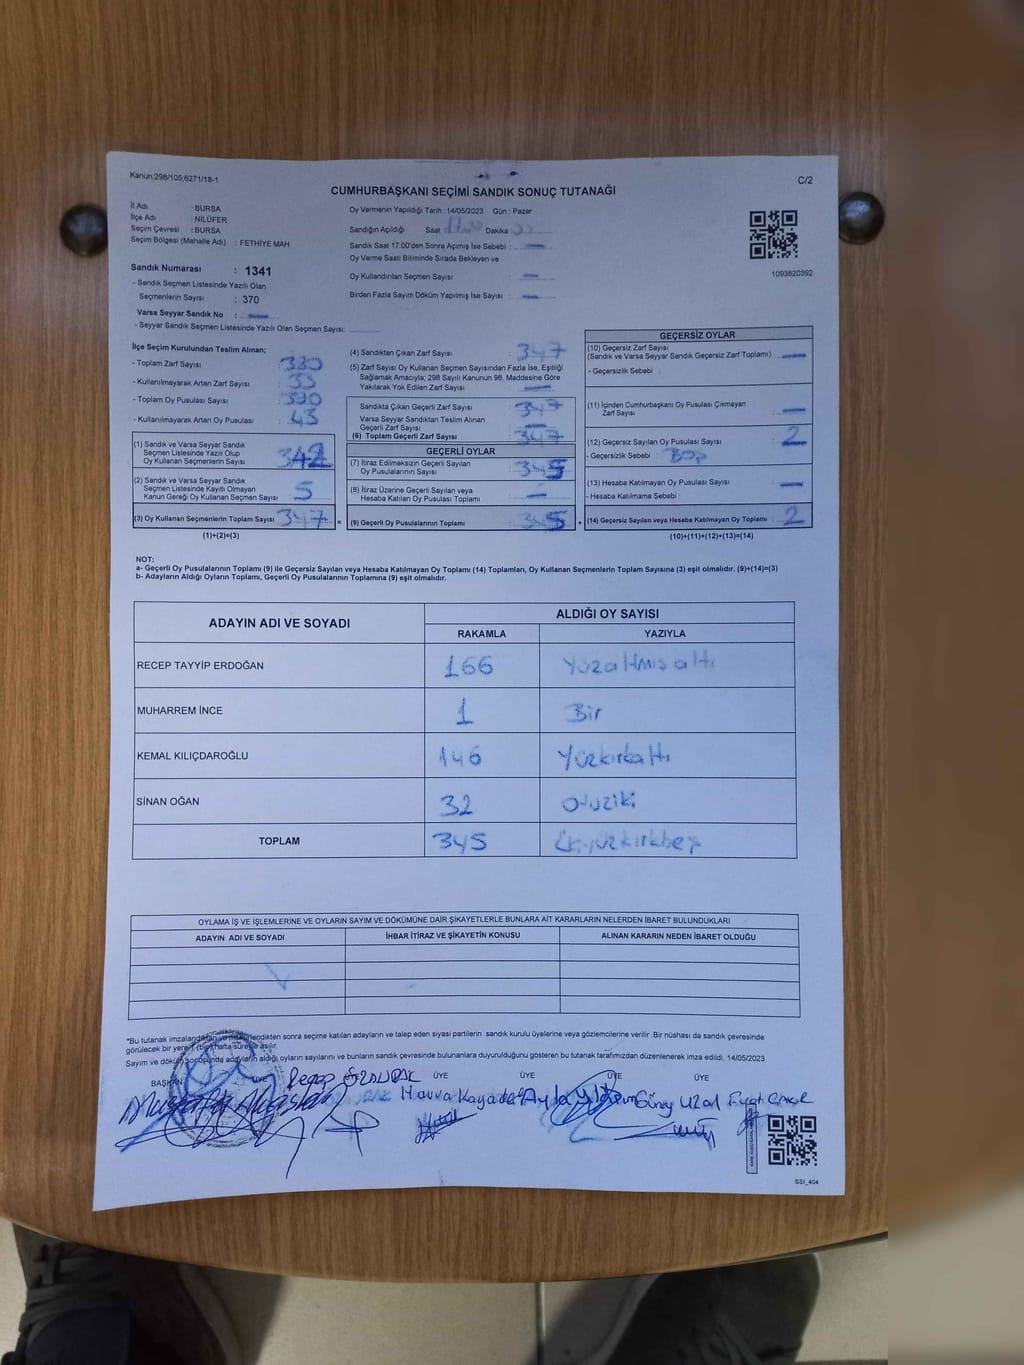 Kanun;298/105;6271/18-1
C/2
CUMHURBAŞKANI SEÇİMİ SANDIK SONUÇ TUTANAĞI
İl Adı : BURSA
İlçe Adı : NİLÜFER
Seçim Çevresi : BURSA
Seçim Bölgesi (Mahalle Adı) : FETHİYE MAH
Sandık Numarası : 1341
- Sandık Seçmen Listesinde Yazılı Olan
Seçmenlerin Sayısı : 370
Varsa Seyyar Sandık No : —
- Seyyar Sandık Seçmen Listesinde Yazılı Olan Seçmen Sayısı:
Oy Vermenin Yapıldığı Tarih : 14/05/2023 Gün : Pazar
Sandığın Açıldığı Saat Dakika
Sandık Saat 17.00'den Sonra Açımış İse Sebebi : —
Oy Verme Saati Bitiminde Sırada Bekleyen ve
Oy Kullandırılan Seçmen Sayısı : —
Birden Fazla Sayım Döküm Yapılmış İse Sayısı : —
1093820392
İlçe Seçim Kurulundan Teslim Alınan;
- Toplam Zarf Sayısı :
- Kullanılmayarak Artan Zarf Sayısı :
- Toplam Oy Pusulası Sayısı :
- Kullanılmayarak Artan Oy Pusulası : 43
(1) Sandık ve Varsa Seyyar Sandık
Seçmen Listesinde Yazılı Olup
Oy Kullanan Seçmenlerin Sayısı : 342
(2) Sandık ve Varsa Seyyar Sandık
Seçmen Listesinde Kayıtlı Olmayan
Kanun Gereği Oy Kullanan Seçmen Sayısı : 5
(3) Oy Kullanan Seçmenlerin Toplam Sayısı : 347
(1)+(2)=(3)
(4) Sandıktan Çıkan Zarf Sayısı : 347
(5) Zarf Sayısı Oy Kullanan Seçmen Sayısından Fazla İse, Eşitliği
Sağlamak Amacıyla; 298 Sayılı Kanunun 98. Maddesine Göre
Yakılarak Yok Edilen Zarf Sayısı : —
Sandıkta Çıkan Geçerli Zarf Sayısı : 347
Varsa Seyyar Sandıktan Teslim Alınan
Geçerli Zarf Sayısı : —
(6) Toplam Geçerli Zarf Sayısı : 347
GEÇERLİ OYLAR
(7) İtiraz Edilmeksizin Geçerli Sayılan
Oy Pusulalarının Sayısı : 345
(8) İtiraz Üzerine Geçerli Sayılan veya
Hesaba Katılan Oy Pusulası Toplamı : —
= (9) Geçerli Oy Pusulalarının Toplamı : 345
GEÇERSİZ OYLAR
(10) Geçersiz Zarf Sayısı
(Sandık ve Varsa Seyyar Sandık Geçersiz Zarf Toplamı) : —
- Geçersizlik Sebebi :
(11) İçinden Cumhurbaşkanı Oy Pusulası Çıkmayan
Zarf Sayısı : —
(12) Geçersiz Sayılan Oy Pusulası Sayısı : 2
- Geçersizlik Sebebi :
(13) Hesaba Katılmayan Oy Pusulası Sayısı : —
- Hesaba Katılmama Sebebi :
+ (14) Geçersiz Sayılan veya Hesaba Katılmayan Oy Toplamı : 2
(10)+(11)+(12)+(13)=(14)
NOT:
a- Geçerli Oy Pusulalarının Toplamı (9) ile Geçersiz Sayılan veya Hesaba Katılmayan Oy Toplamı (14) Toplamları, Oy Kullanan Seçmenlerin Toplam Sayısına (3) eşit olmalıdır. (9)+(14)=(3)
b- Adayların Aldığı Oyların Toplamı, Geçerli Oy Pusulalarının Toplamına (9) eşit olmalıdır.
ADAYIN ADI VE SOYADI ALDIĞI OY SAYISI
RAKAMLA YAZIYLA
RECEP TAYYİP ERDOĞAN 166 Yüzaltmışaltı
MUHARREM İNCE 1 Bir
KEMAL KILIÇDAROĞLU 146 Yüzkırkaltı
SİNAN OĞAN 32 Otuziki
TOPLAM 345 Üçyüzkırkbeş
OYLAMA İŞ VE İŞLEMLERİNE VE OYLARIN SAYIM VE DÖKÜMÜNE DAİR ŞİKAYETLERLE BUNLARA AİT KARARLARIN NELERDEN İBARET BULUNDUKLARI
ADAYIN ADI VE SOYADI İHBAR İTİRAZ VE ŞİKAYETİN KONUSU ALINAN KARARIN NEDEN İBARET OLDUĞU
*Bu tutanak imzalandıktan ve mühürlendikten sonra seçime katılan adayların ve talep eden siyasi partilerin sandık kurulu üyelerine veya gözlemcilerine verilir. Bir nüshası da sandık çevresinde
görülecek bir yere (bir) hafta süreyle asılır.
Sayım ve döküm sonucunda adayların aldığı oyların sayılarını ve bunların sandık çevresinde bulunanlara duyurulduğunu gösteren bu tutanak tarafımızdan düzenlenerek imza edildi. 14/05/2023
BAŞKAN ÜYE ÜYE ÜYE ÜYE
Havva Ayla Yıldırım Güney
SSI_404